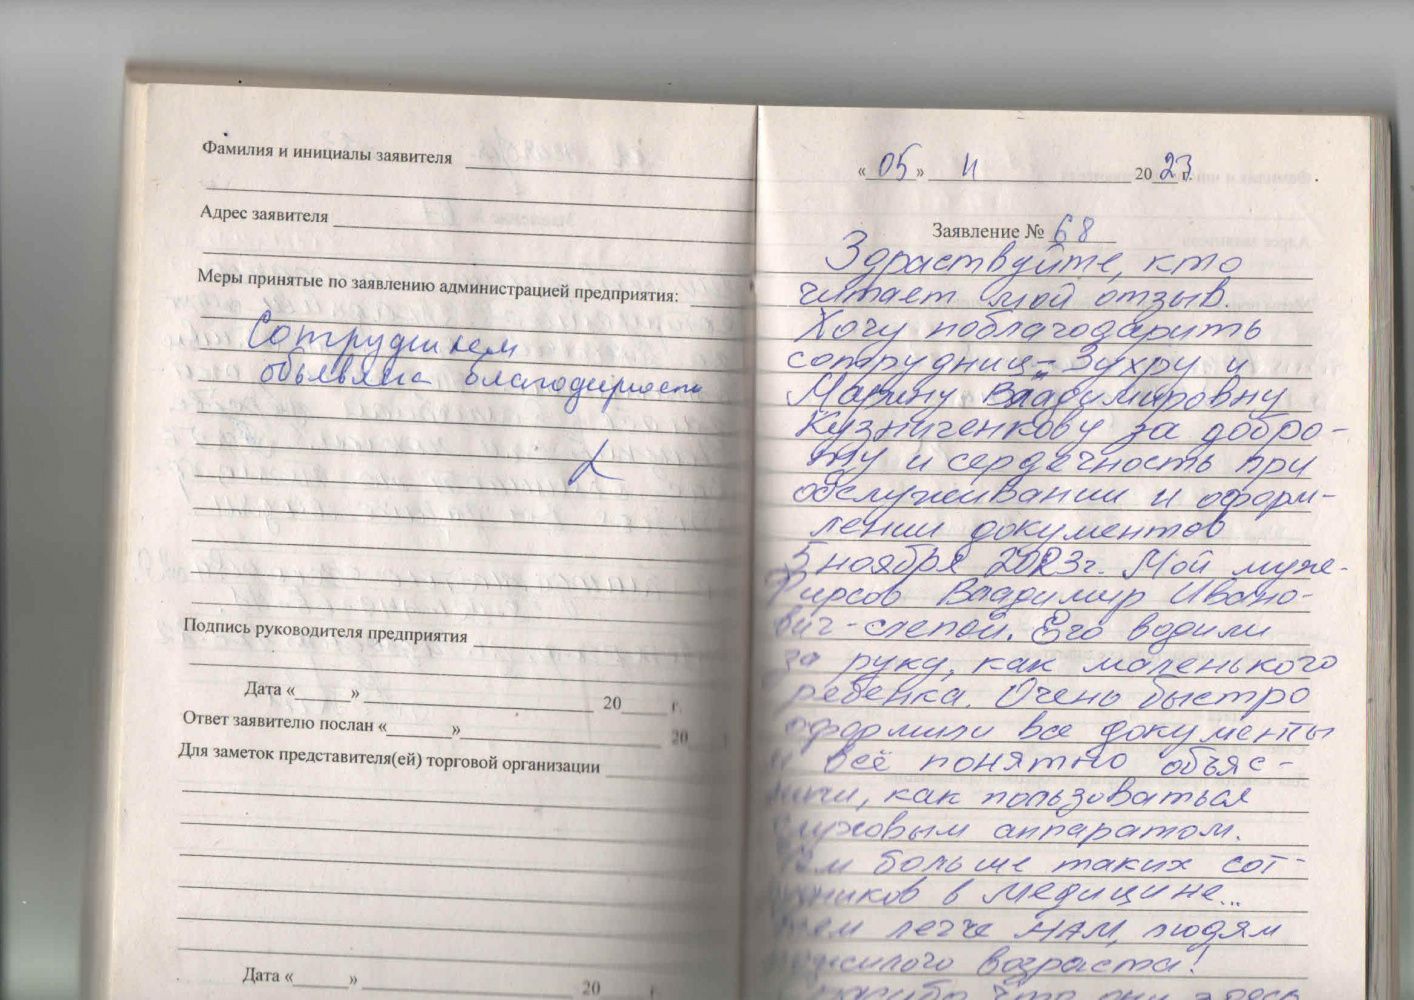 Фамилия и инициалы заявителя
Адрес заявителя
Меры принятые по заявлению администрацией предприятия:
Сотрудникам
объявлена благодарность
Подпись руководителя предприятия
Дата «      »            20     г.
Ответ заявителю послан «      »            20
Для заметок представителя(ей) торговой организации
Дата «      »            20     г
«05» 11 2023 г.
Заявление № 68
Здраствуйте, кто
читает мой отзыв.
Хочу поблагодарить
сотрудниц - Зухру и
Марину Владимировну
Кузниченкову за добро-
ту и сердечность при
обслуживании и оформ-
лении документов
5 ноября 2023г. Мой муж-
Фирсов Владимир Ивано-
вич - слепой. Его водили
за руку, как маленького
ребёнка. Очень быстро
оформили все документы
и всё понятно объяс-
нили, как пользоваться
слуховым аппаратом.
Чем больше таких сот-
рудников в медицине...
тем легче НАМ, людям
пожилого возраста!
Спасибо что они здесь